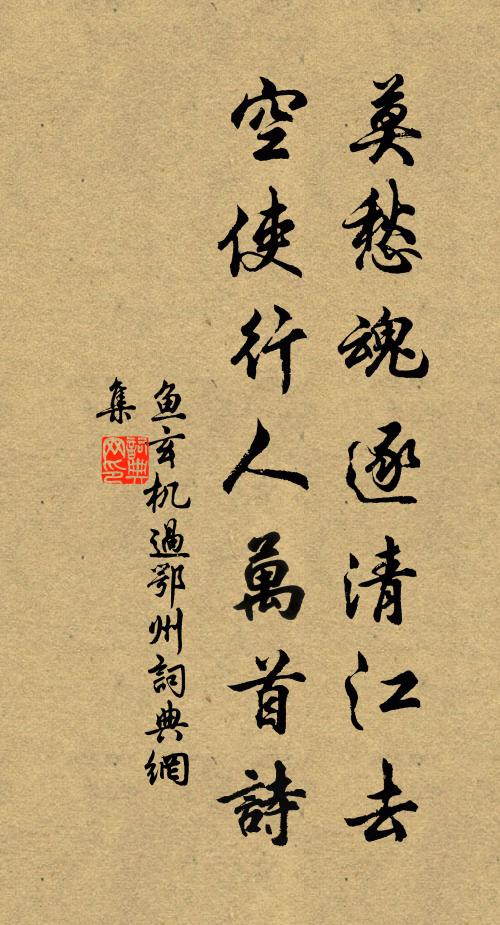 莫愁魂逐清江去
空使行人萬首詩
魚玄机過鄂州詞典網
集
詞典
网印